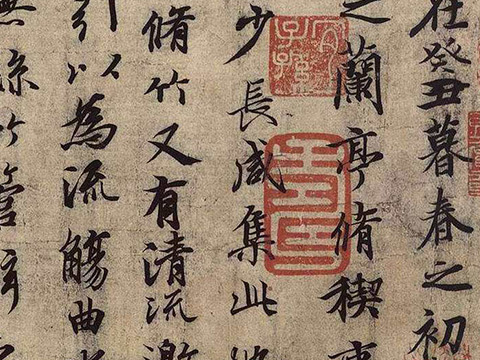 在癸丑暮春之初
之蘭亭脩禊事
少長咸集此地
脩竹又有清流激
引以為流觴曲
無絲竹管弦